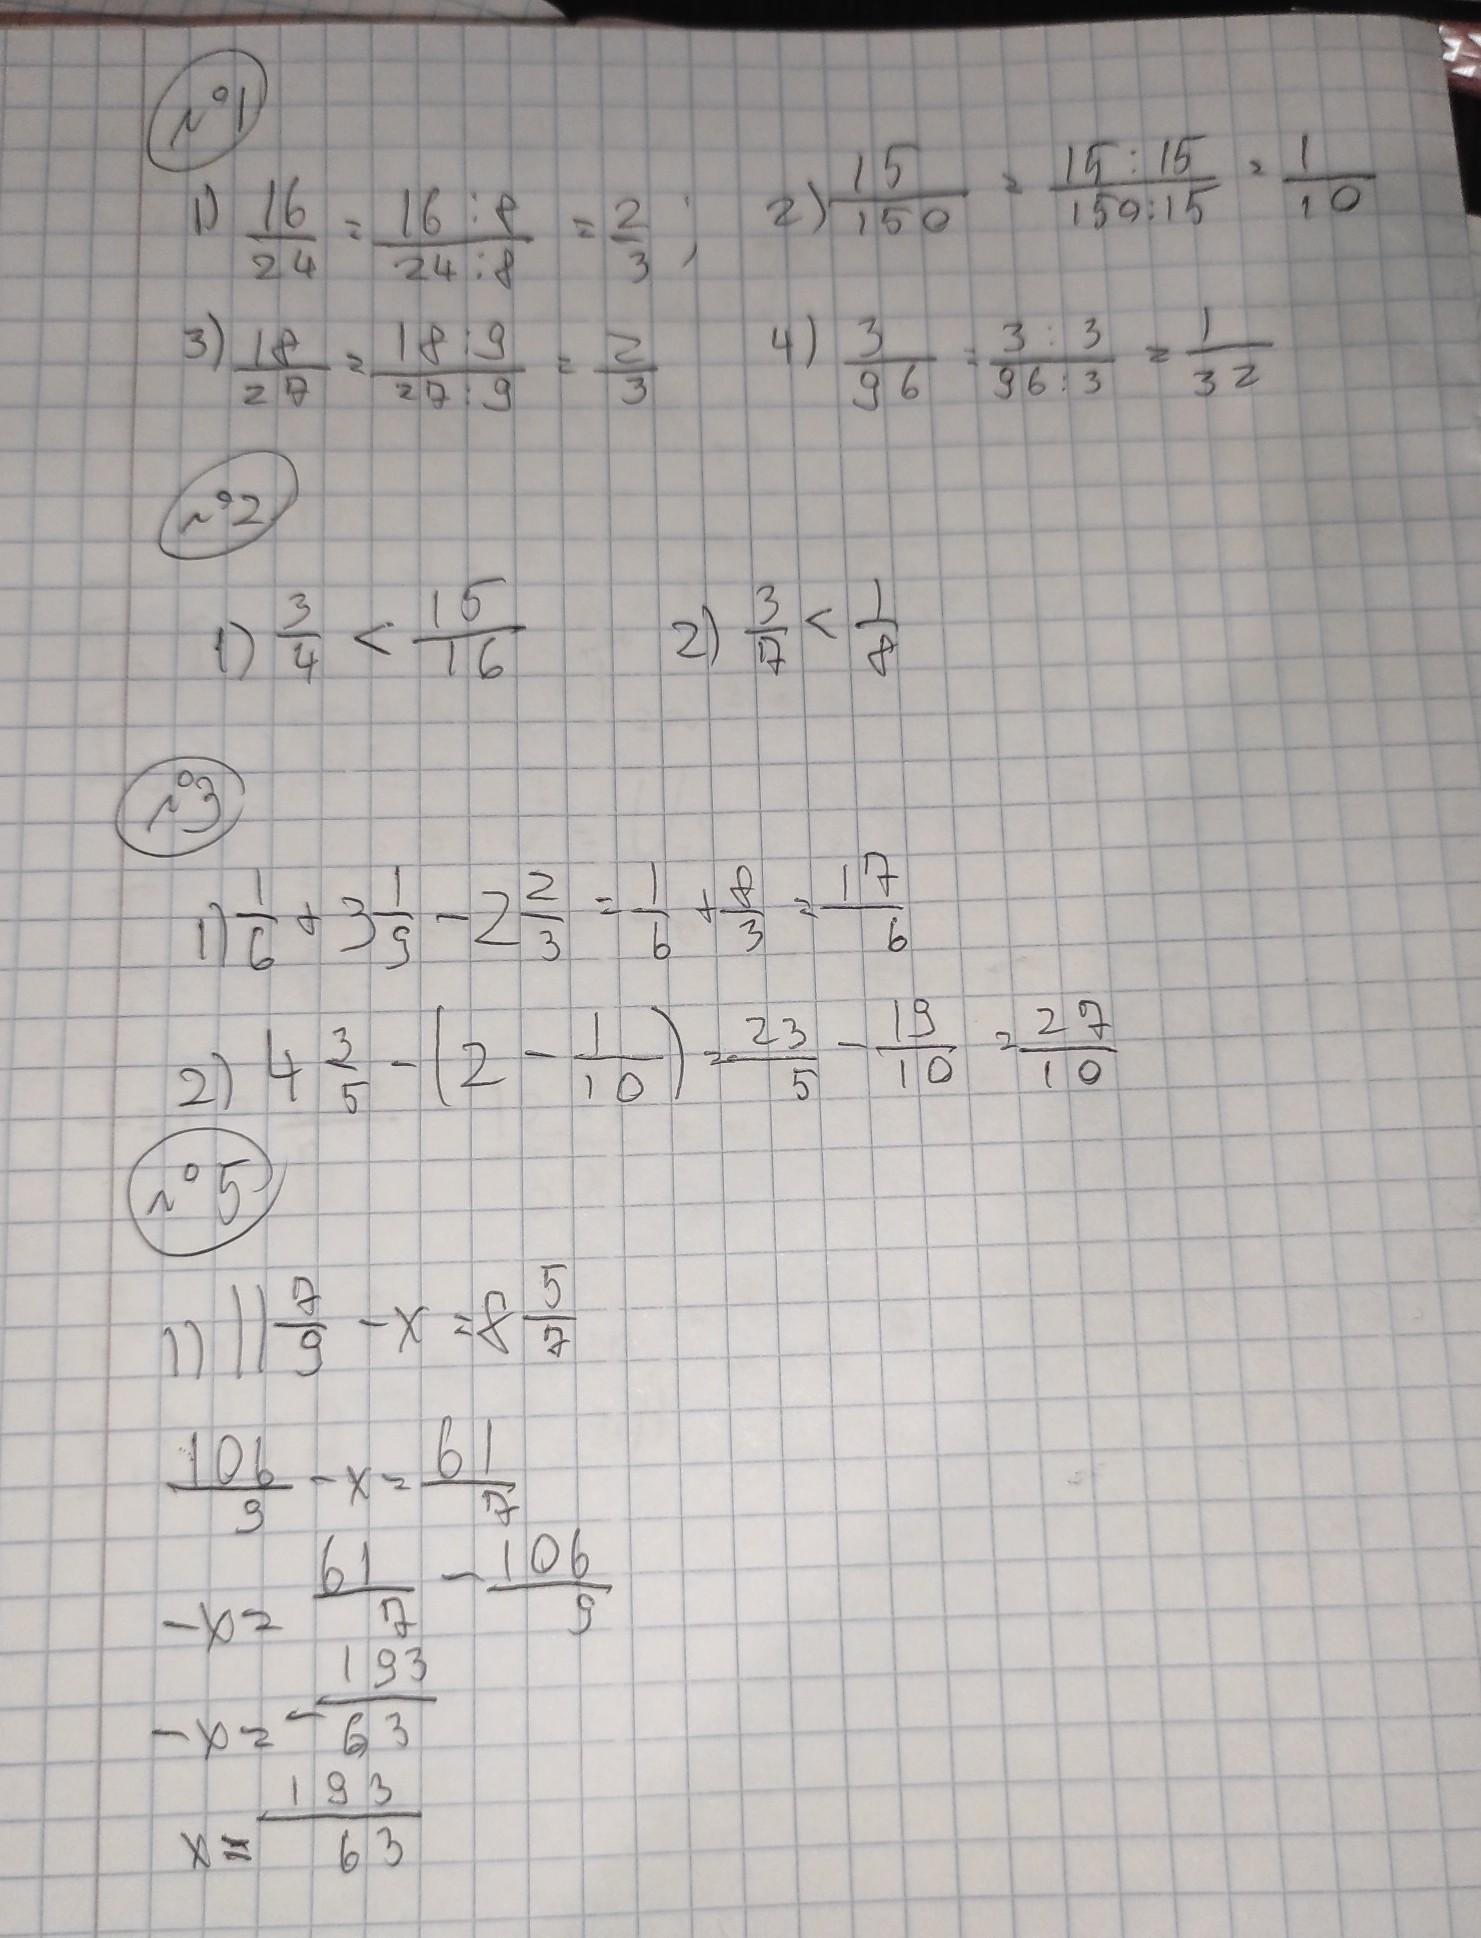 №1
1) 16/24 = 16:8/24:8 = 2/3; 2) 15/150 = 15:15/150:15 = 1/10
3) 18/27 = 18:9/27:9 = 2/3 4) 3/96 = 3:3/96:3 = 1/32
№2
1) 3/4 < 15/16 2) 3/7 < 1/8
№3
1) 1/6 + 3 1/9 - 2 2/3 = 1/6 + 8/3 = 17/6
2) 4 3/5 - (2 - 1/10) = 23/5 - 19/10 = 27/10
№5
1) 11 7/9 - x = 8 5/7
106/9 - x = 61/7
-x = 61/7 - 106/9
-x = - 193/63
x = 193/63